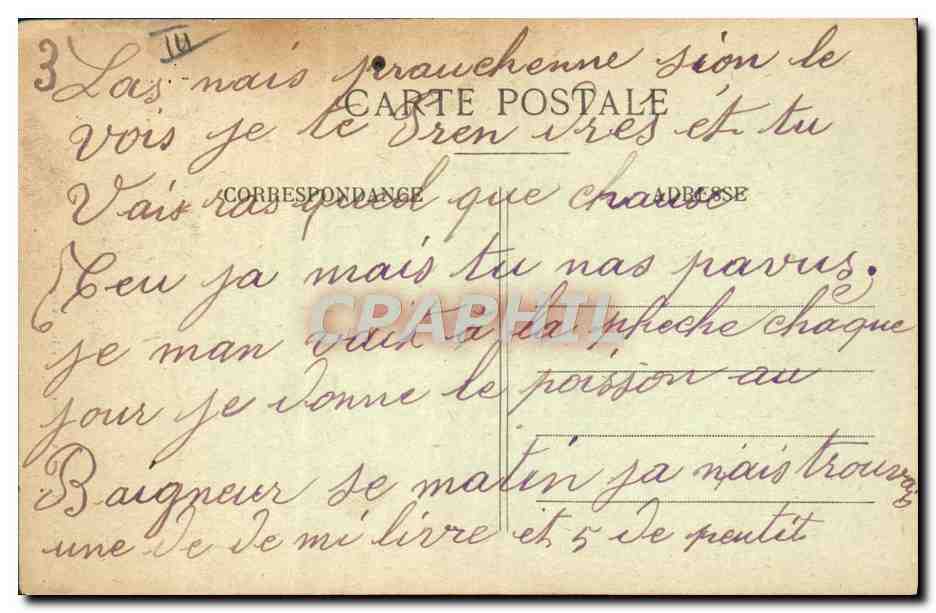 3 III
Las nais prauchenne sion le
CARTE POSTALE
vois je te Pren dres et tu
CORRESPONDANCE ADRESSE
Vais ras quel que chause
Ceu ja mais tu nas pavus.
CPAPHIL
je man vait a la pheche chaque
jour je donne le poisson au
Baigneur se matin ja nais trouvai
une de de mi livre et 5 de peutit